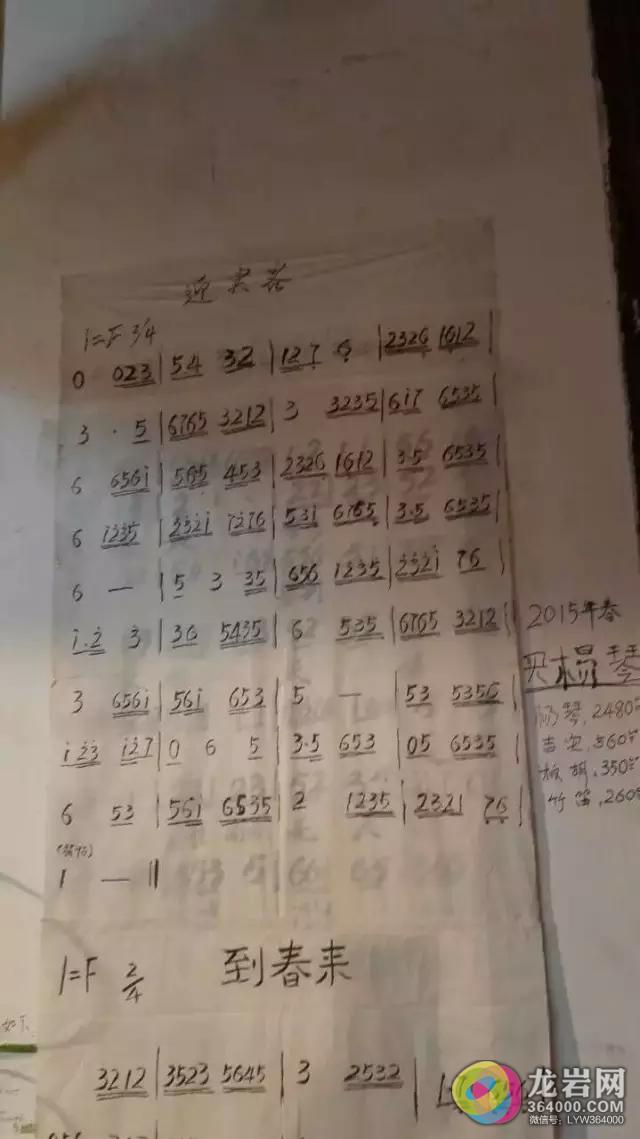 迎来春
1=F 3/4
0 023 | 54 32 | 127 6 | 2326 1612 |
3 · 5 | 6765 3212 | 3 3235 | 6i7 6535 |
6 656i | 565 453 | 2326 1612 | 3·5 6535 |
6 i235 | 232i 7276 | 53i 6765 | 3·5 6535 |
6 — | 5 3 35 | 656 1235 | 232i 76 |
i·2 3 | 36 5435 | 6 535 | 6765 3212 |
3 656i | 56i 653 | 5 — | 53 5356 |
i23 i27 | 0 6 5 | 3·5 653 | 05 6535 |
6 53 | 56i 6535 | 2 1235 | 2321 76 |
1 — ‖
1=F 2/4 到春来
3212 | 3523 5645 | 3 2532 |
2015年春
买扬琴
扬琴,2480元
板胡,350元
竹笛,260
如下
龙岩网
364000.com
微信号:LYW364000